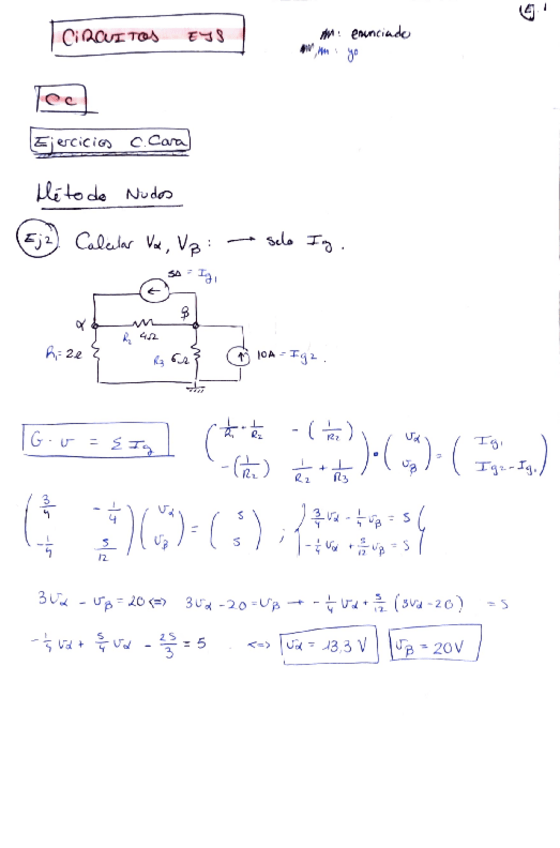 Ej. 1
CIRCUITOS EJS
m: enunciado
m, m: yo
CC
Ejercicios C. Cara
Método Nudos
Ej2 Calcular Vα, Vβ: → solo Ig.
5A = Ig1
α β
R2 4Ω
R1 = 2Ω R3 6Ω 10A = Ig2.
G · v = Σ Ig
( 1/R1 + 1/R2 -(1/R2) ) · ( vα ) = ( Ig1 )
( -(1/R2) 1/R2 + 1/R3 ) ( vβ ) ( Ig2 - Ig1 )
( 3/4 -1/4 ) ( vα ) = ( 5 ) ; { 3/4 vα - 1/4 vβ = 5
( -1/4 5/12 ) ( vβ ) ( 5 ) { -1/4 vα + 5/12 vβ = 5
3vα - vβ = 20 <=> 3vα - 20 = vβ → -1/4 vα + 5/12 (3vα - 20) = 5
-1/4 vα + 5/4 vα - 25/3 = 5 <=> vα = 13,3 V vβ = 20V